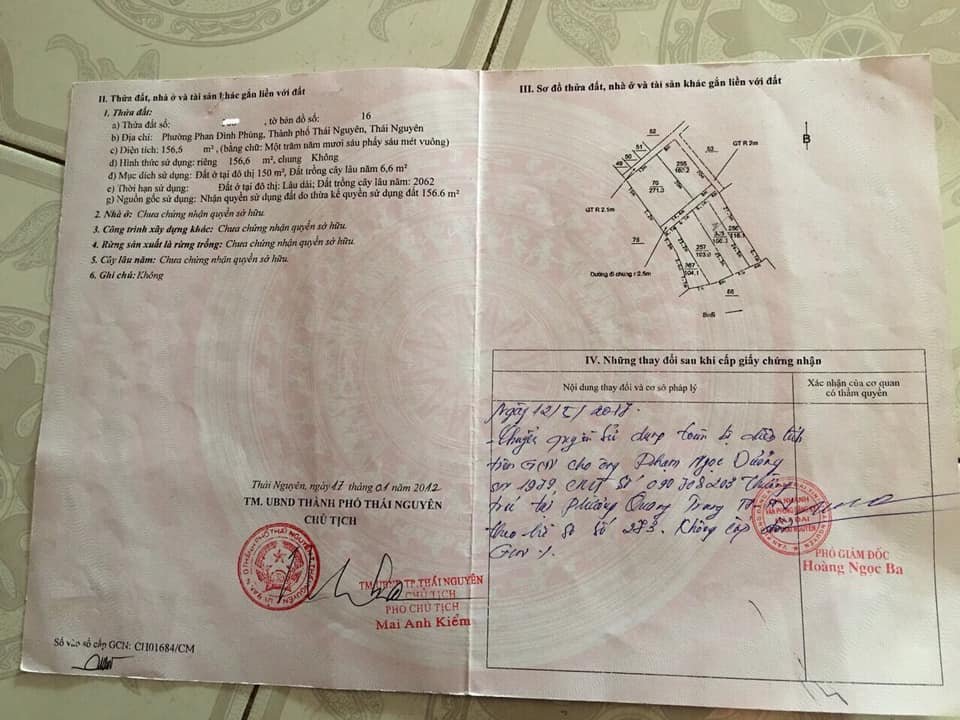 II. Thửa đất, nhà ở và tài sản khác gắn liền với đất
1. Thửa đất:
a) Thửa đất số: , tờ bản đồ số: 16
b) Địa chỉ: Phường Phan Đình Phùng, Thành phố Thái Nguyên, Thái Nguyên
c) Diện tích: 156,6 m², (bằng chữ: Một trăm năm mươi sáu phẩy sáu mét vuông)
d) Hình thức sử dụng: riêng 156,6 m², chung Không
đ) Mục đích sử dụng: Đất ở tại đô thị 150 m², Đất trồng cây lâu năm 6,6 m²
e) Thời hạn sử dụng: Đất ở tại đô thị: Lâu dài; Đất trồng cây lâu năm: 2062
g) Nguồn gốc sử dụng: Nhận quyền sử dụng đất do thừa kế quyền sử dụng đất 156.6 m²
2. Nhà ở: Chưa chứng nhận quyền sở hữu.
3. Công trình xây dựng khác: Chưa chứng nhận quyền sở hữu.
4. Rừng sản xuất là rừng trồng: Chưa chứng nhận quyền sở hữu.
5. Cây lâu năm: Chưa chứng nhận quyền sở hữu.
6. Ghi chú: Không
Thái Nguyên, ngày 17 tháng 01 năm 2012
TM. UBND THÀNH PHỐ THÁI NGUYÊN
CHỦ TỊCH
TM. UBND TP.THÁI NGUYÊN
CHỦ TỊCH
PHÓ CHỦ TỊCH
Mai Anh Kiểm
Số vào sổ cấp GCN: CH01684/CM
III. Sơ đồ thửa đất, nhà ở và tài sản khác gắn liền với đất
B
52
51
50
49
53
GT R 2m
255
70
271.3
GT R 2.1m
78
256
257
103.0
367
104.1
Đường đi chung r 2.5m
68
IV. Những thay đổi sau khi cấp giấy chứng nhận
Nội dung thay đổi và cơ sở pháp lý
Xác nhận của cơ quan
có thẩm quyền
Ngày 12/ / 2017.
- Chuyển quyền sử dụng toàn bộ diện tích
trên GCN cho ông Phạm Ngọc Dưỡng
sn 1979, CMT số 090708203 Thường
trú tại phường Quang Trung TP
theo hồ sơ số 273. Không cấp
GCN
PHÓ GIÁM ĐỐC
Hoàng Ngọc Ba